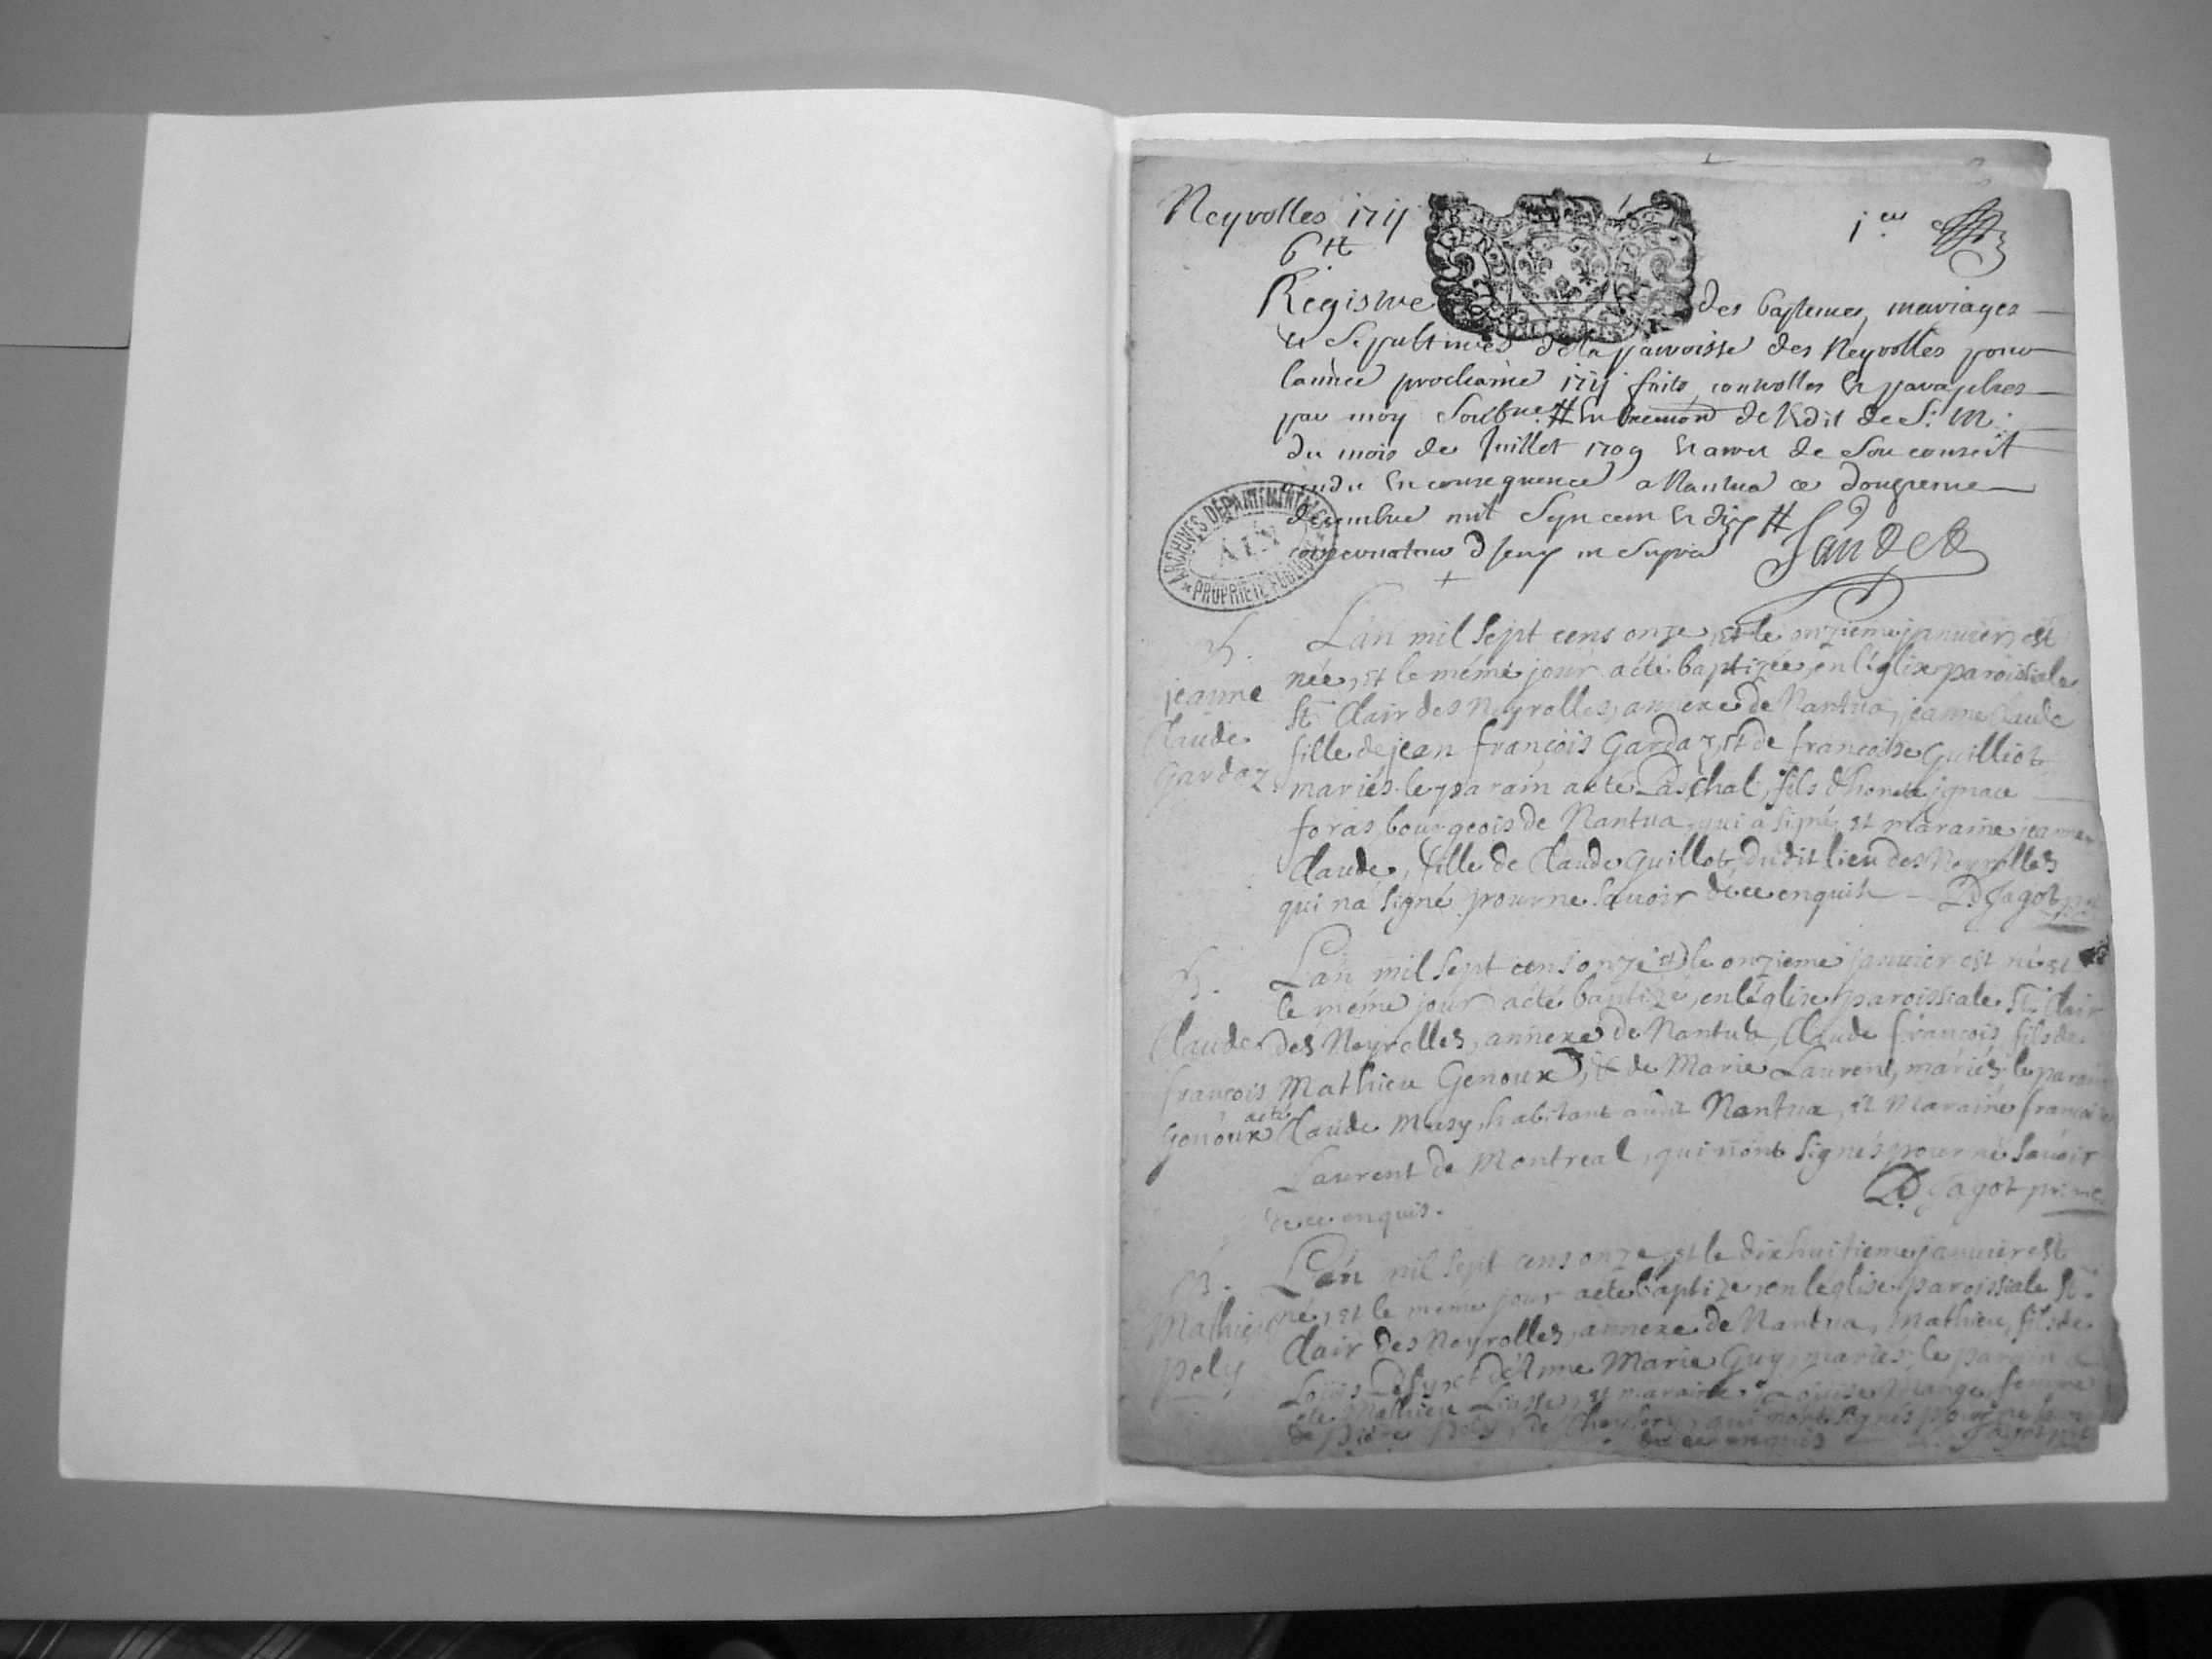 Neyrolles 1711
6 tt
1.er
Registre des baptemes, mariages
et Sepultures de la parroisse des Neyrolles pour
lannee prochaine 1711 faits, controlles et paraphes
par moy Soubne. # en de Ledit de S. M.
du mois de Juillet 1709 et arret de Son conseil
rendu en consequence a Nantua ce
decembre mil Sept cent et dix #
conservateur ut Supra
ARCHIVES DÉPARTEMENTALES
AIN
PROPRIÉTÉ PUBLIQUE
B.
jeanne
Claude
Gardaz
L'an mil sept cens onze, et le onzieme janvier, est
née, et le même jour a été baptizée, en l'église paroissiale
St. Clair des Neyrolles, annexe de Nantua, jeanne Claude
fille de jean françois Gardaz, et de françoise Guilliot
mariés. le parain a eté Paschal, fils d'honble ignace
foras, bourgeois de Nantua, qui a signé, et maraine jeanne
Claude, fille de Claude Guillot, dudit lieu des Neyrolles
qui n'a signé pour ne savoir de ce enquise - D. Jagot
B.
Claude
françois
Genoux
L'an mil sept cens onze et le onzieme janvier est né et
le même jour a été baptizé, en l'église paroissiale St. Clair
des Neyrolles, annexe de Nantua, Claude françois, fils de
Mathieu Genoux, & de Marie Laurent, mariés. le parain
a eté Claude Musy, habitant audit Nantua, et Maraine françoise
Laurent de Montreal, qui n'ont signés pour ne savoir
de ce enquis. D. Jagot
B.
Mathieu
Pely
L'an mil sept cens onze, et le dixhuitieme janvier est
né, et le même jour a eté baptizé, en l'eglise paroissiale St.
Clair des Neyrolles, annexe de Nantua, Mathieu, fils de
Loüis et d'Anne Marie Guy, mariés. le parain a
eté Mathieu et maraine femme
de pierre Pely, de qui n'ont signés pour ne savoir
de ce enquis